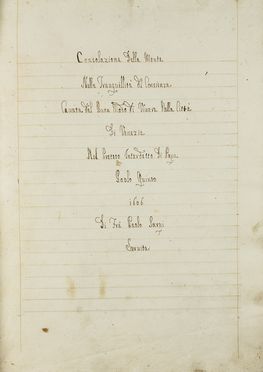 Consolazione Della Mente
Nella Tranquillità Di Coscienza
Cavata Dal Buon Modo Di Vivere Nella Città
Di Venezia
Nel Preteso Interdetto Di Papa
Paolo Quinto
1606
Di Frà Paolo Sarpi
Servita